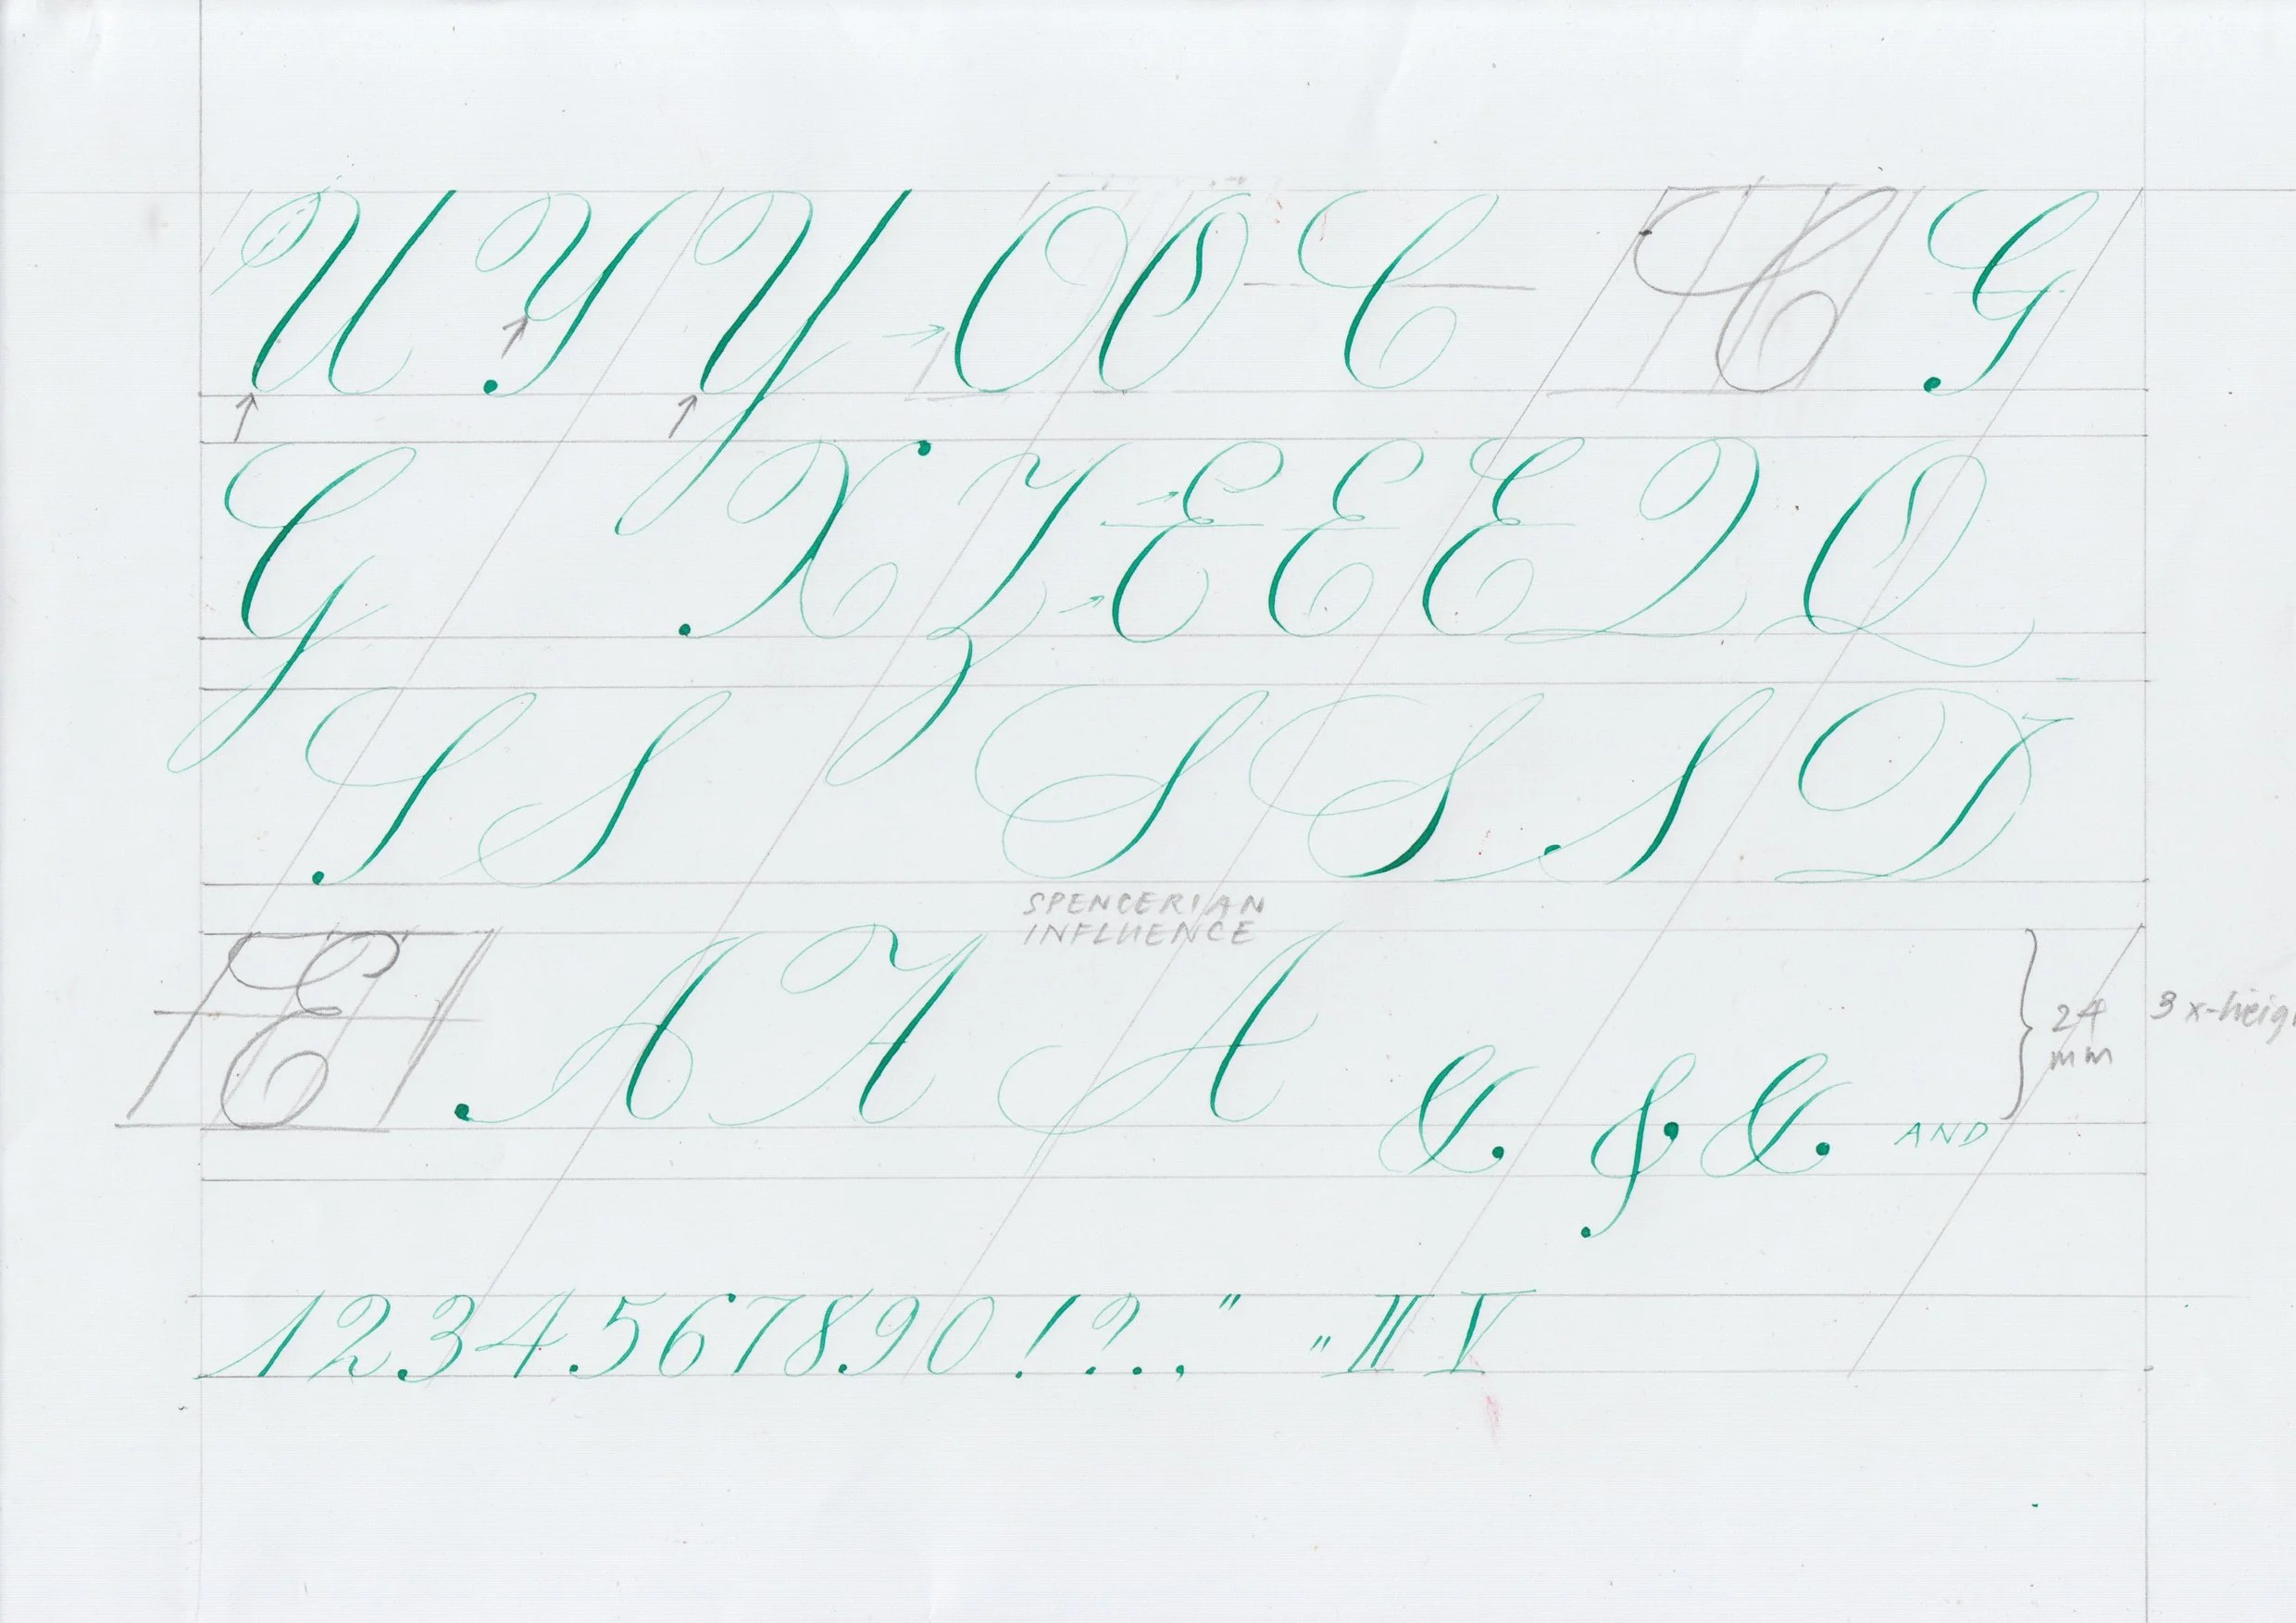 U Y Y O O C C G
G X Z E E E Q Q
S S S S S D
SPENCERIAN
INFLUENCE
E A A A & & & AND
24
mm
3 x-heig
1 2 3 4 5 6 7 8 9 0 ! ? . , " „ II V